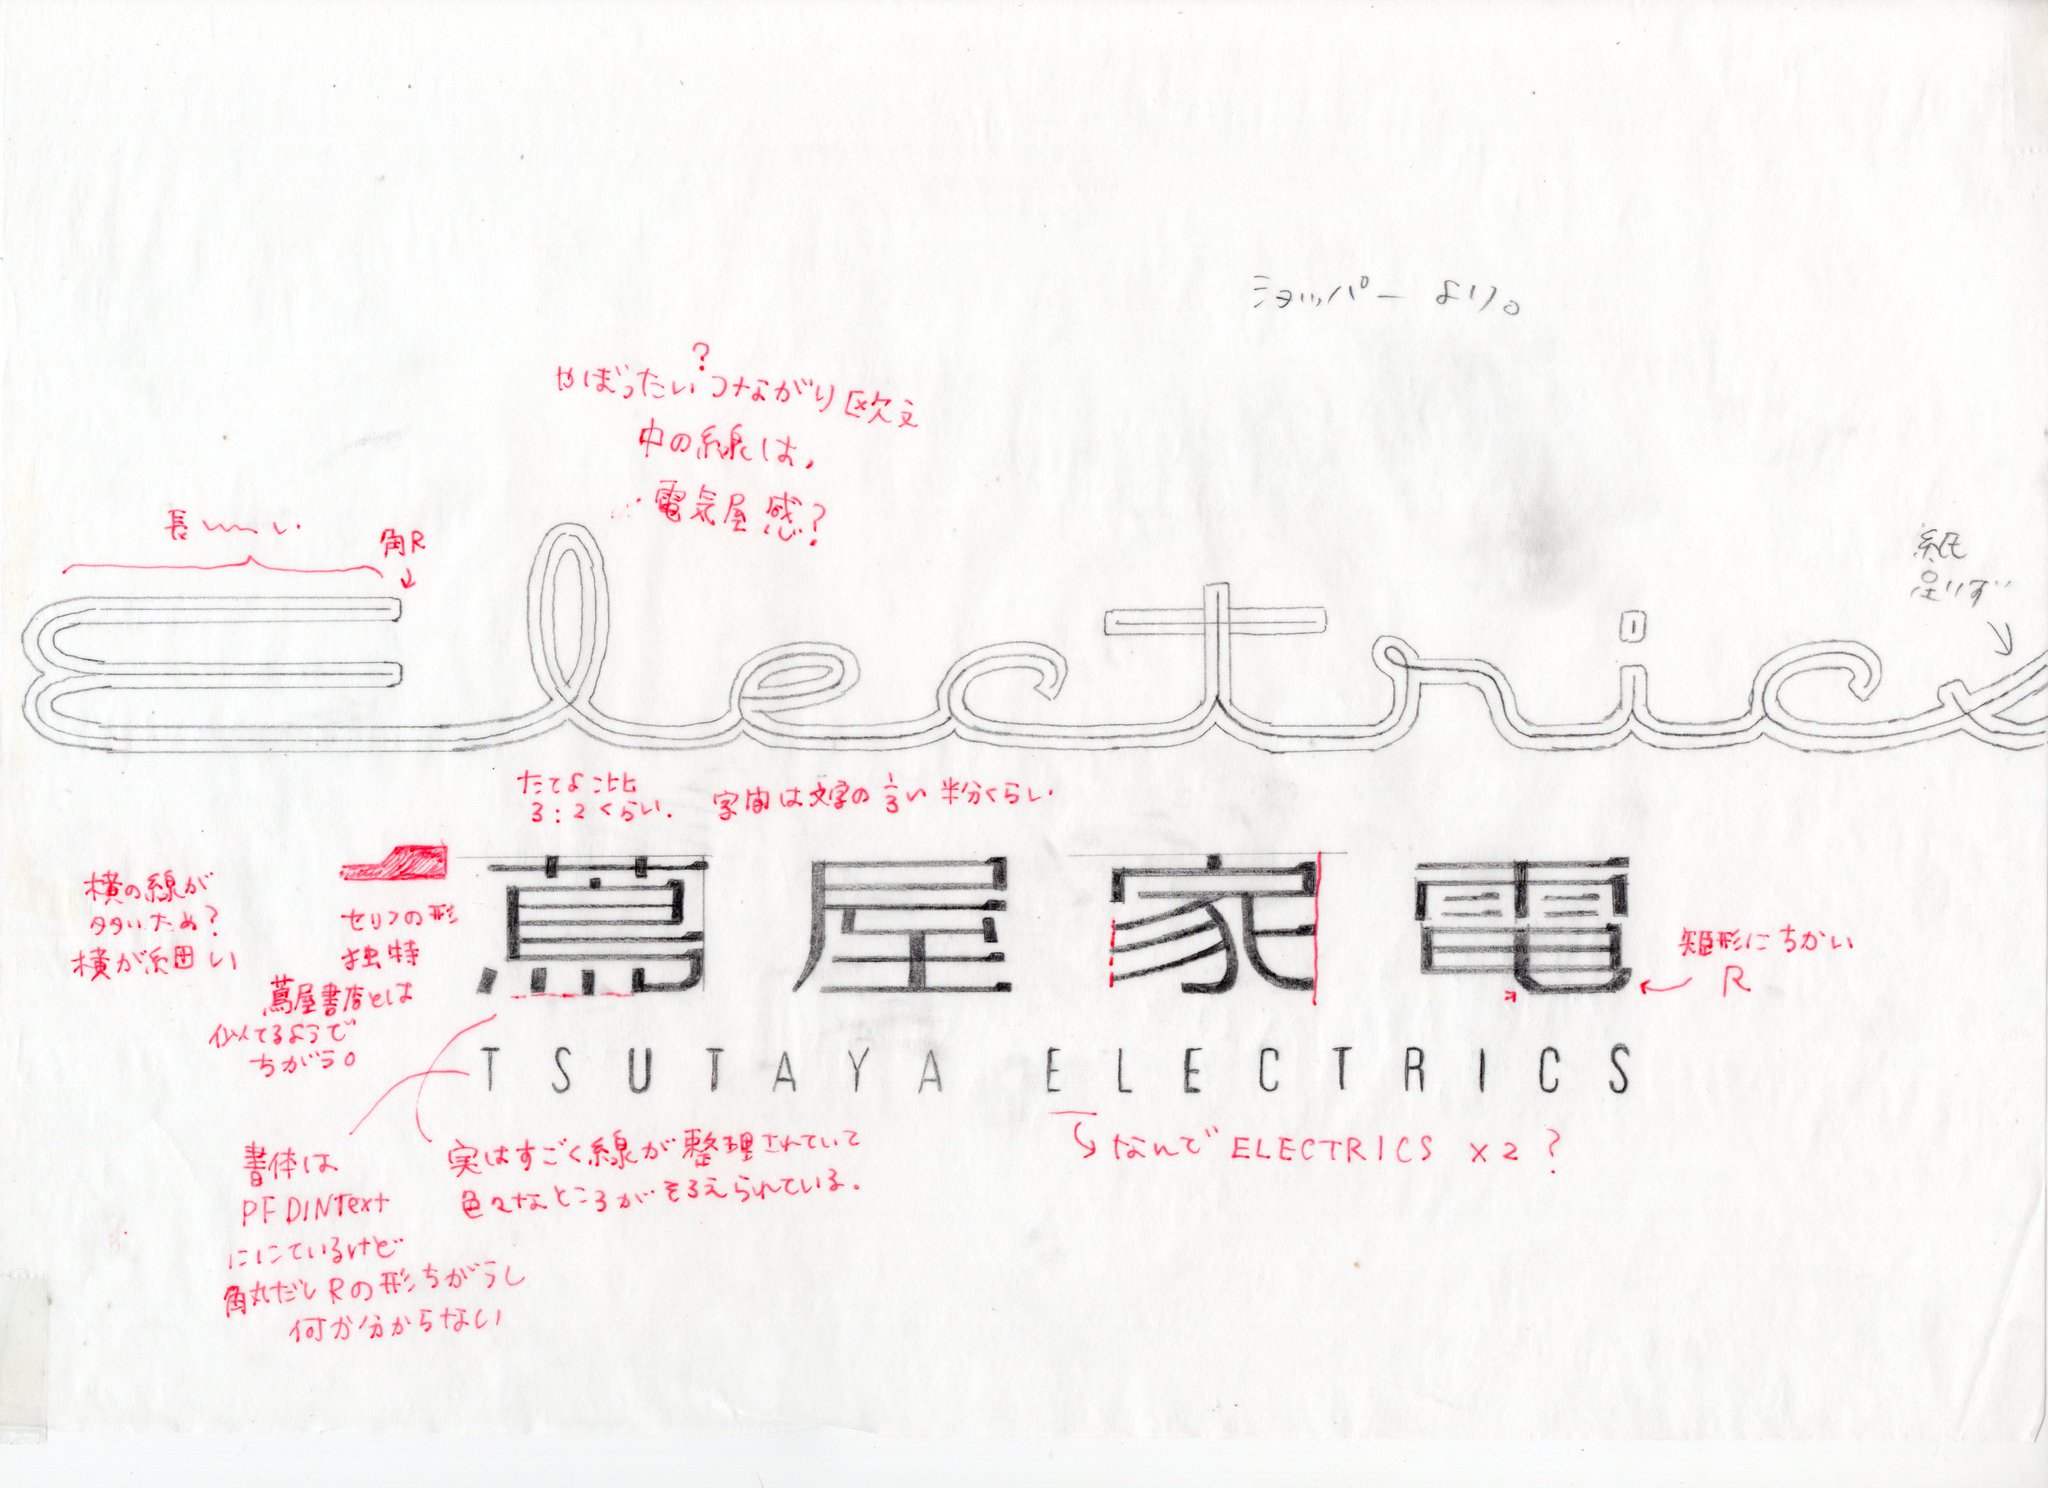 ショッパーより。
?
やぼったいつながり欧文
中の線は、
電気屋感?
長い〜〜い
角R
紙
足りず
Electrics
たてよこ比
3:2くらい.
字間は文字の1/3い半分くらい.
横の線が
多いため?
横が細い
セリフの形
独特
蔦屋書店とは
似てるようで
ちがう。
蔦屋家電
矩形にちかい
R
TSUTAYA ELECTRICS
なんでELECTRICS×2?
書体は
PF DINText
ににているけど
角丸だしRの形ちがうし
何か分からない
実はすごく線が整理されていて
色々なところがそろえられている.